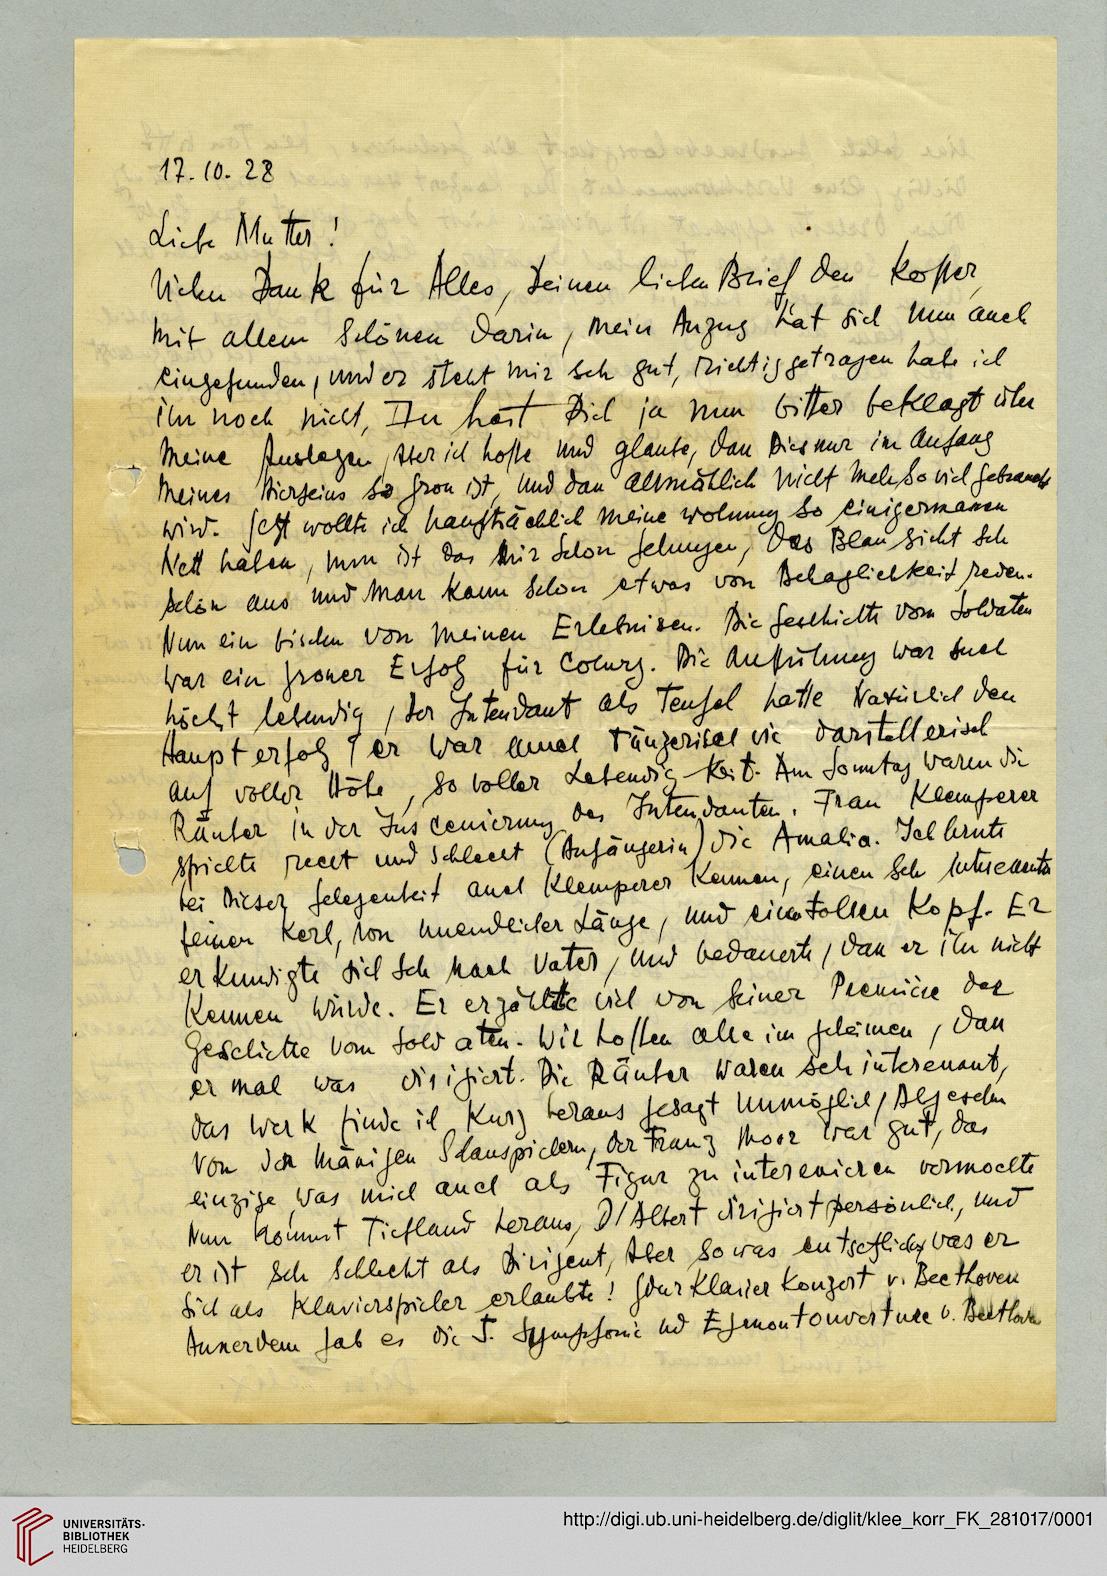 17.10.28
Liebe Mutter!
Vielen Dank für Alles, Deinen lieben Brief den Koffer,
mit allem Schönen darin, mein Anzug hat sich nun auch
eingefunden, und er steht mir seh gut, richtig getragen habe ich
ihn noch nicht, Du hast Dich ja nun bitter beklagt über
meine Auslagen, aber ich hoffe und glaube, dan dies nur im Anfang
meines Hierseins so gron ist, und dan allmählich nicht meh so viel gebraucht
wird. Jetzt wollte ich hauptsächlich meine wohnung so einigermanen
Nett haben, nun ist das mir schon gelungen, das Blau sieht seh
schön aus und man kann schon etwas von Behaglichkeit reden.
Nun ein bischen von meinen Erlebnisen. Die Geschichte vom Soldaten
war ein groner Erfolg für Coburg. Die Aufführung war auch
höchst lebendig, der Intendant als Teufel hatte Natürlich den
Haupterfolg, er war auch Tänzerisch wie darstellerisch
auf voller Höhe, so voller Lebendigkeit. Am Sonntag waren die
Räuber in der Inscenierung des Intendanten. Frau Klemperer
spielte recht und schlecht (Anfängerin) die Amalia. Ich lernte
bei dieser Gelegenheit auch Klemperer Kennen, einen seh Interesanten
feinen Kerl, von unendlicher Länge, und einen tollen Kopf. Er
erkundigte sich seh nach Vater, und bedauerte, dan er ihn nicht
Kennen würde. Er erzählte viel von seiner Premiere der
Geschichte vom Soldaten. Wir hoffen alle im geheimen, dan
er mal was dirigiert. Die Räuber waren seh interenant,
das Werk finde ich Kurz heraus gesagt unmöglich, Abgesehn
von den mänigen Schauspielern, der Franz Moor war gut, das
einzige was mich auch als Figur zu interenieren vermochte
Nun kommt Tiefland heraus, D'Albert dirigiert persönlich, und
er ist seh schlecht als Dirigent, aber sowas entsetzliches was er
sich als Klavierspieler erlaubte! Gdur Klavier Konzert v. Beethoven
Aunerdem gab es die 5. Symphonie und Egmontouverture v. Beethoven
UNIVERSITÄTS-
BIBLIOTHEK
HEIDELBERG
http://digi.ub.uni-heidelberg.de/diglit/klee_korr_FK_281017/0001